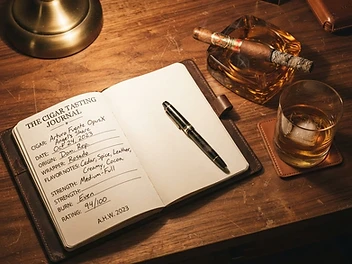 THE CIGAR TASTING
JOURNAL
CIGAR: Arturo Fuente OpusX
Angel's Share
DATE: Oct 24, 2023
ORIGIN: Dom. Rep.
WRAPPER: Rosado
FLAVOR NOTES: Cedar, Spice, Leather,
Creamy, Cocoa
STRENGTH: Medium-Full
STRENGTH:
BURN: Even
RATING: 94/100
A.H.W. 2023